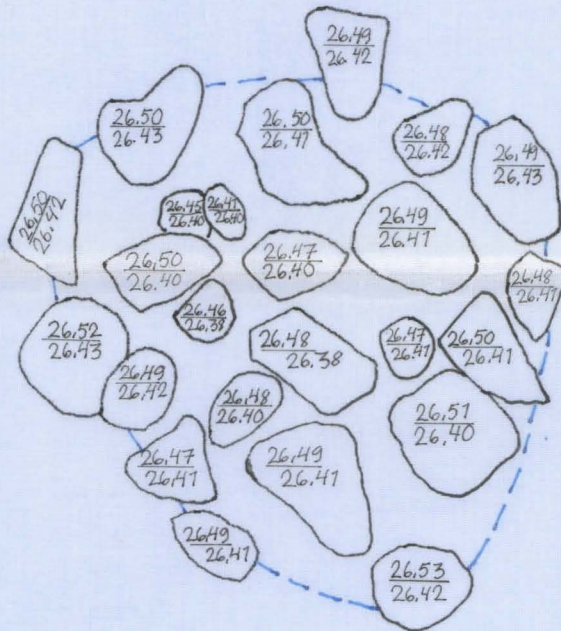 26.49
26.42
26.50
26.43
26.50
26.41
26.48
26.42
26.49
26.43
26.50
26.42
26.45
26.40
26.41
26.40
26.49
26.41
26.50
26.40
26.47
26.40
26.48
26.41
26.46
26.38
26.52
26.43
26.48
26.38
26.47
26.41
26.50
26.41
26.49
26.42
26.48
26.40
26.51
26.40
26.47
26.41
26.49
26.41
26.49
26.41
26.53
26.42